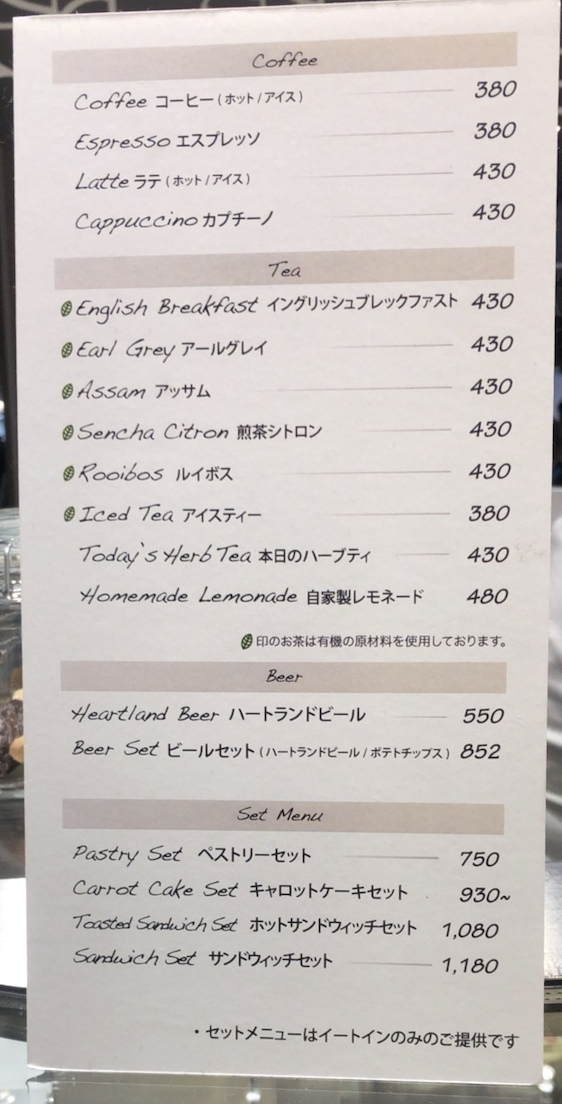 Coffee
Coffee コーヒー(ホット/アイス) 380
Espresso エスプレッソ 380
Latte ラテ(ホット/アイス) 430
Cappuccino カプチーノ 430
Tea
English Breakfast イングリッシュブレックファスト 430
Earl Grey アールグレイ 430
Assam アッサム 430
Sencha Citron 煎茶シトロン 430
Rooibos ルイボス 430
Iced Tea アイスティー 380
Today's Herb Tea 本日のハーブティ 430
Homemade Lemonade 自家製レモネード 480
印のお茶は有機の原材料を使用しております。
Beer
Heartland Beer ハートランドビール 550
Beer Set ビールセット(ハートランドビール/ポテトチップス) 852
Set Menu
Pastry Set ペストリーセット 750
Carrot Cake Set キャロットケーキセット 930~
Toasted Sandwich Set ホットサンドウィッチセット 1,080
Sandwich Set サンドウィッチセット 1,180
・セットメニューはイートインのみのご提供です